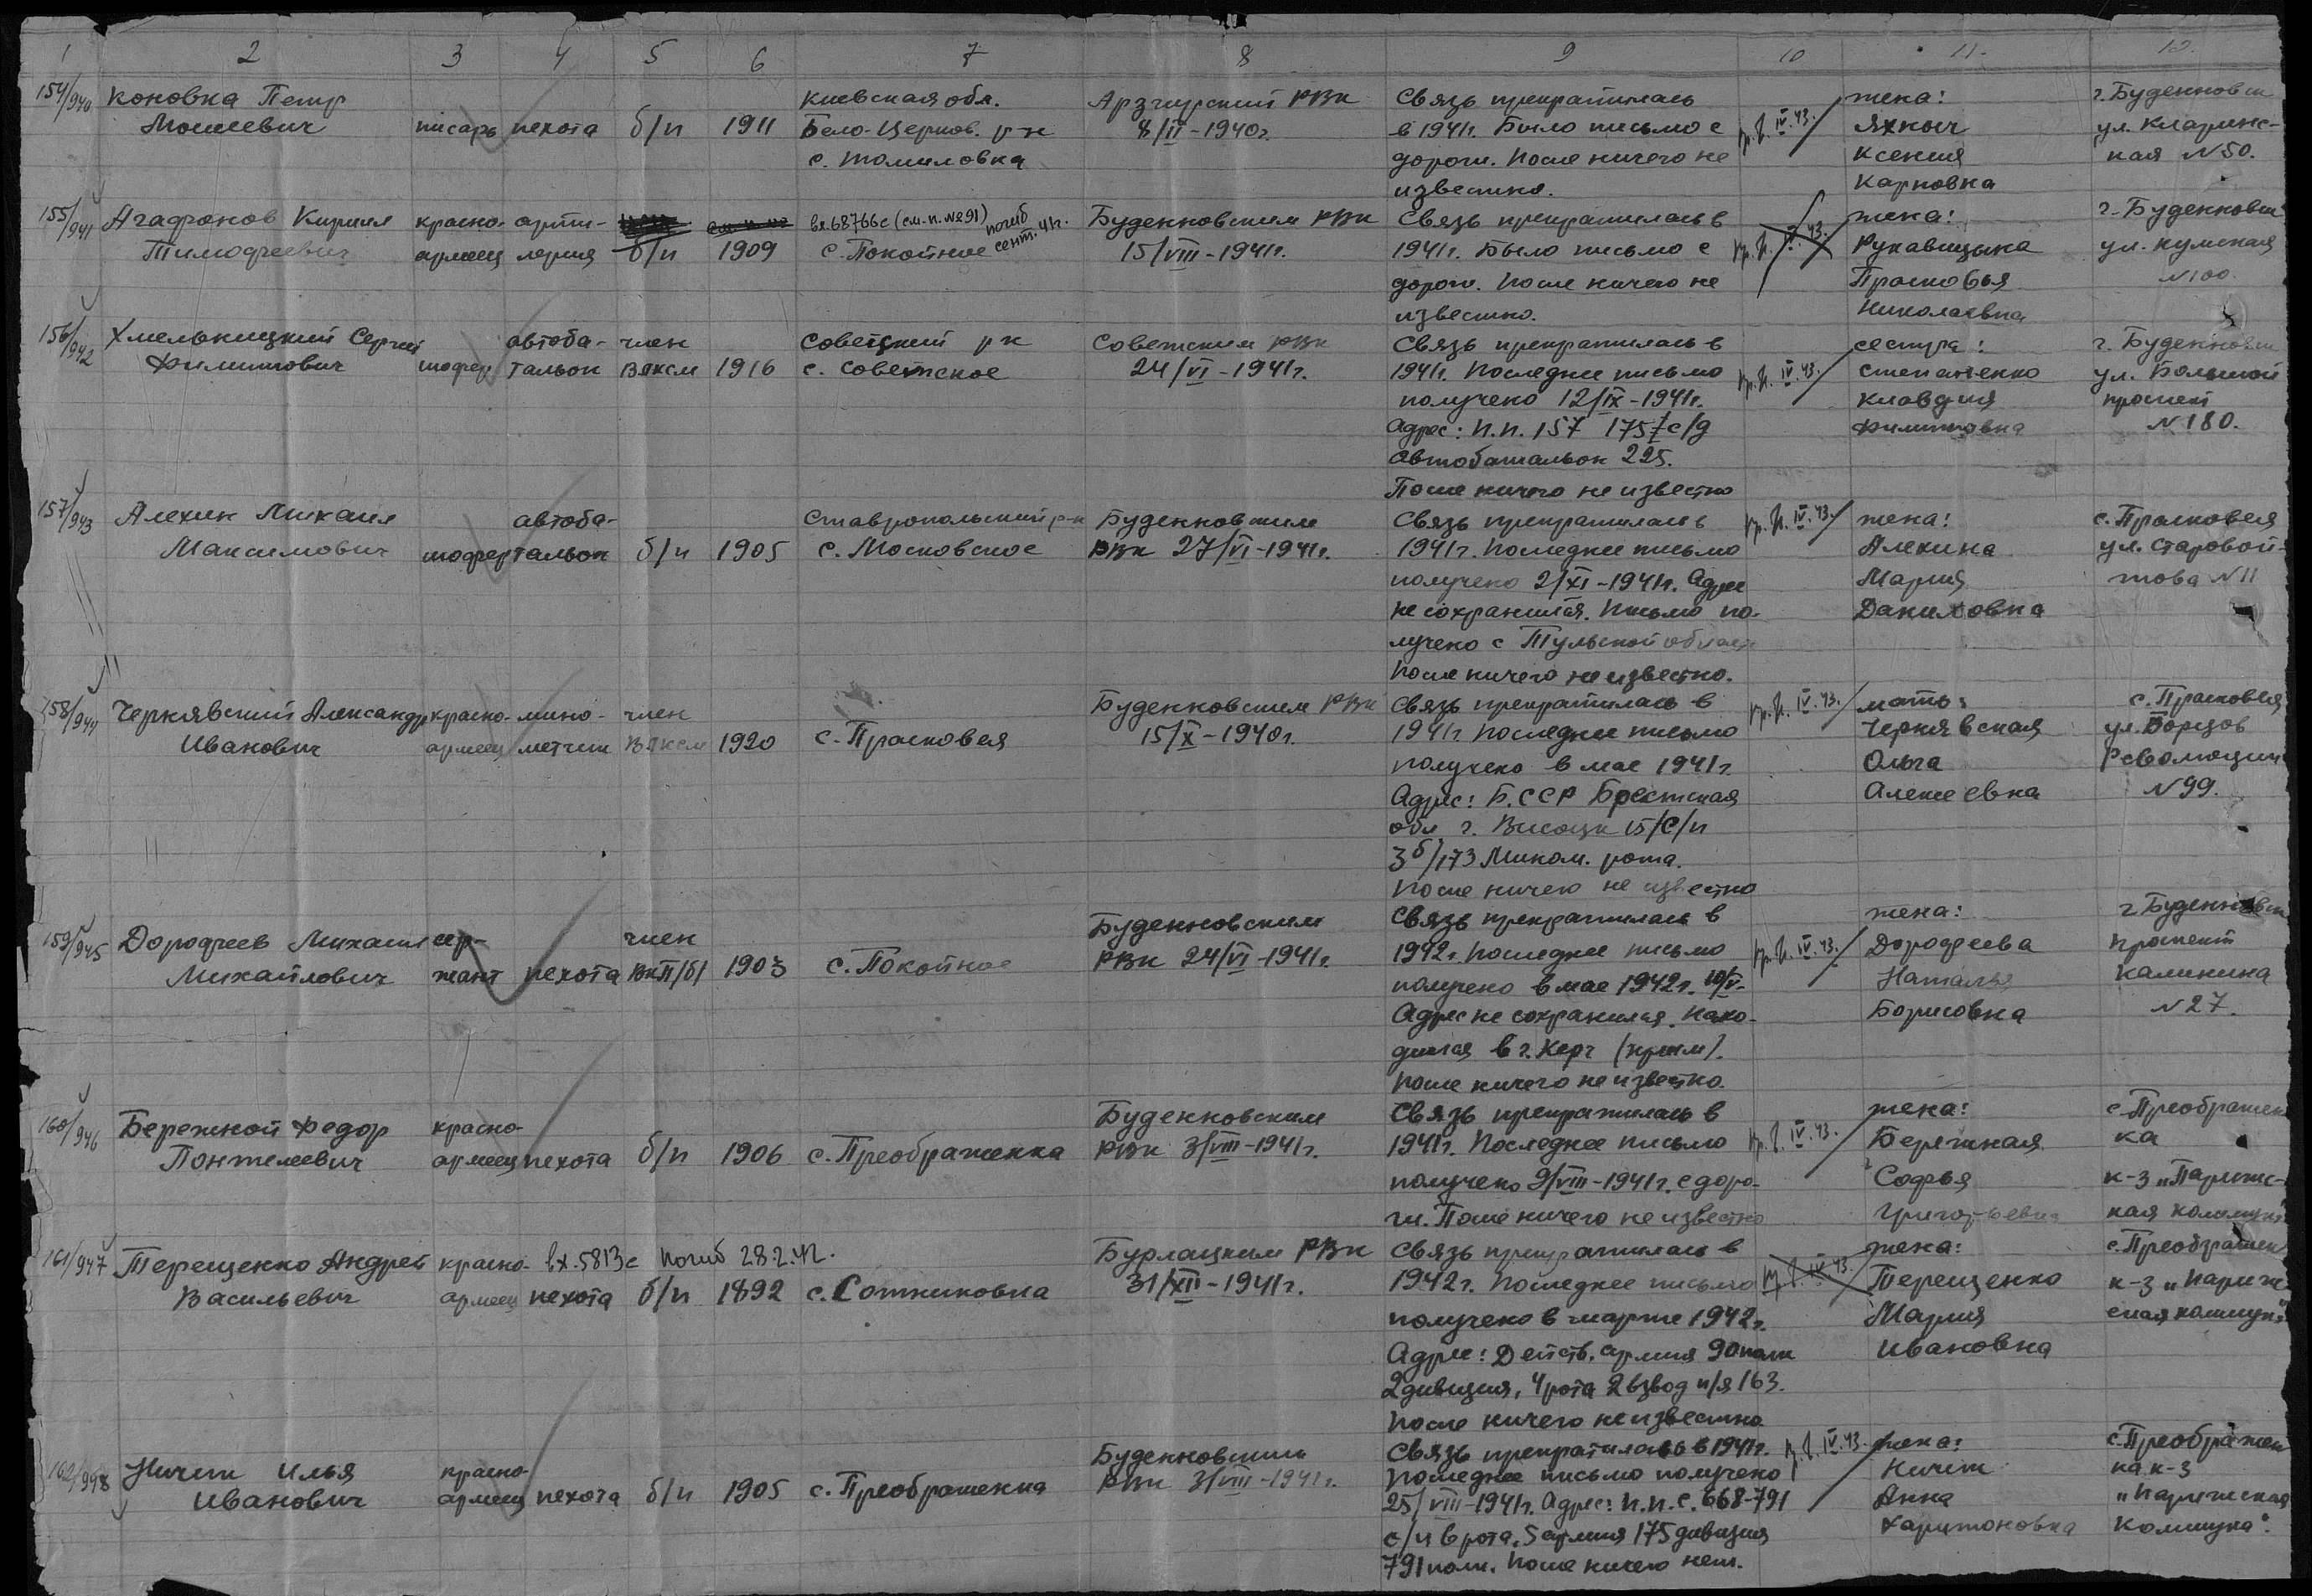 1 2 3 4 5 6 7 8 9 10 11. 12.
154/940 Коновка Петр
Моисеевич
писарь
пехота
б/п
1911
Киевская обл.
Бело-Церков. р-н
с. Томиловка
Арзгирский РВК
8/II-1940г.
Связь прекратилась
в 1941г. Было письмо с
дороги. После ничего не
известно.
пр. IV.43.
жена:
Яхныч
Ксения
Карповна
г. Буденновск
ул. Кларинс-
кая N50.
155/941 Агафонов Кирилл
Тимофеевич
красно-
армеец
арти-
лерия
б/п
1909
вх.68766с (см.п.№91) погиб
сент. 41г.
с. Покойное
Буденновским РВК
15/VIII-1941г.
Связь прекратилась в
1941г. Было письмо с
дороги. После ничего не
известно.
пр. IV.43.
жена:
Рукавицына
Прасковья
Николаевна
г. Буденновск
ул. Кумская
N100.
156/942 Хмельницкий Сергей
Филиппович
шофер
автоба-
тальон
член
ВЛКСМ
1916
Советский р-н
с. Советское
Советским РВК
24/VI-1941г.
Связь прекратилась в
1941г. Последнее письмо
получено 12/IX-1941г.
Адрес: п.п. 157 1757 с/д
Автобатальон 225.
После ничего не известно
пр. IV.43.
сестра:
Степаненко
Клавдия
Филипповна
г. Буденновск
ул. Большой
проспект
N180.
157/943 Алехин Михаил
Максимович
шофер
автоба-
тальон
б/п
1905
Ставропольский р-н
с. Московское
Буденновским
РВК 27/VI-1941г.
Связь прекратилась в
1941г. Последнее письмо
получено 2/XI-1941г. Адрес
не сохранился. Письмо по-
лучено с Тульской области
После ничего не известно.
пр. IV.43.
жена:
Алехина
Мария
Даниловна
с. Прасковея
ул. Старовой-
това N11
158/944 Чернявский Александр
Иванович
красно-
армеец
мино-
метчик
член
ВЛКСМ
1920
с. Прасковея
Буденновским РВК
15/X-1940г.
Связь прекратилась в
1941г. Последнее письмо
получено в мае 1941г.
Адрес: Б.ССР Брестская
обл. г. Высоцк 15/с/п
3б/173 Миком. рота.
После ничего не известно
пр. IV.43.
мать:
Чернявская
Ольга
Алексеевна
с. Прасковея
ул. Борцов
Революции
N99.
159/945 Дорофеев Михаил
Михайлович
сер-
жант
пехота
член
ВКП/б/
1903
с. Покойное
Буденновским
РВК 24/VI-1941г.
Связь прекратилась в
1942г. Последнее письмо
получено в мае 1942г. 10/V-
Адрес не сохранился. Нахо-
дился в г. Керч (Крым).
После ничего не известно.
пр. IV.43.
жена:
Дорофеева
Наталья
Борисовна
г. Буденновск
проспект
Калинина
N27.
160/946 Бережной Федор
Понтелеевич
красно-
армеец
пехота
б/п
1906
с. Преображенка
Буденновским
РВК 3/VIII-1941г.
Связь прекратилась в
1941г. Последнее письмо
получено 9/VIII-1941г. с доро-
ги. После ничего не известно
пр. IV.43.
жена:
Бережная
Софья
Григорьевна
с. Преображен
ка
к-з „Парижс-
кая коммуна"
161/947 Терещенко Андрей
Васильевич
красно-
армеец
вх.5813с погиб 28.2.42.
пехота
б/п
1892
с. Сотниковка
Бурлацким РВК
31/XII-1941г.
Связь прекратилась в
1942г. Последнее письмо
получено в марте 1942г.
Адрес: Действ. армия 90 полк
2 дивизия, 4 рота 2 взвод п/я 163.
После ничего не известно
IV.43.
жена:
Терещенко
Мария
Ивановна
с. Преображен
к-з „Париж-
ская коммуна"
162/948 Ничик Илья
Иванович
красно-
армеец
пехота
б/п
1905
с. Преображенка
Буденновским
РВК 3/VIII-1941г.
Связь прекратилась в 1941г.
Последнее письмо получено
25/VIII-1941г. Адрес: п.п.с. 668-791
с/п 6 рота, 5 армия 175 дивизия
791 полк. После ничего нет.
IV.43.
жена:
Ничик
Анна
Харитоновна
с. Преображен
ка к-з
„Парижская
Коммуна".